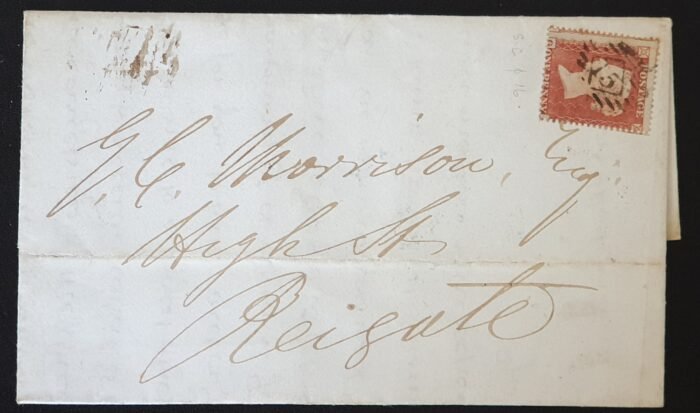 G. C. Morrison, Esq.
High St
Reigate
POSTAGE